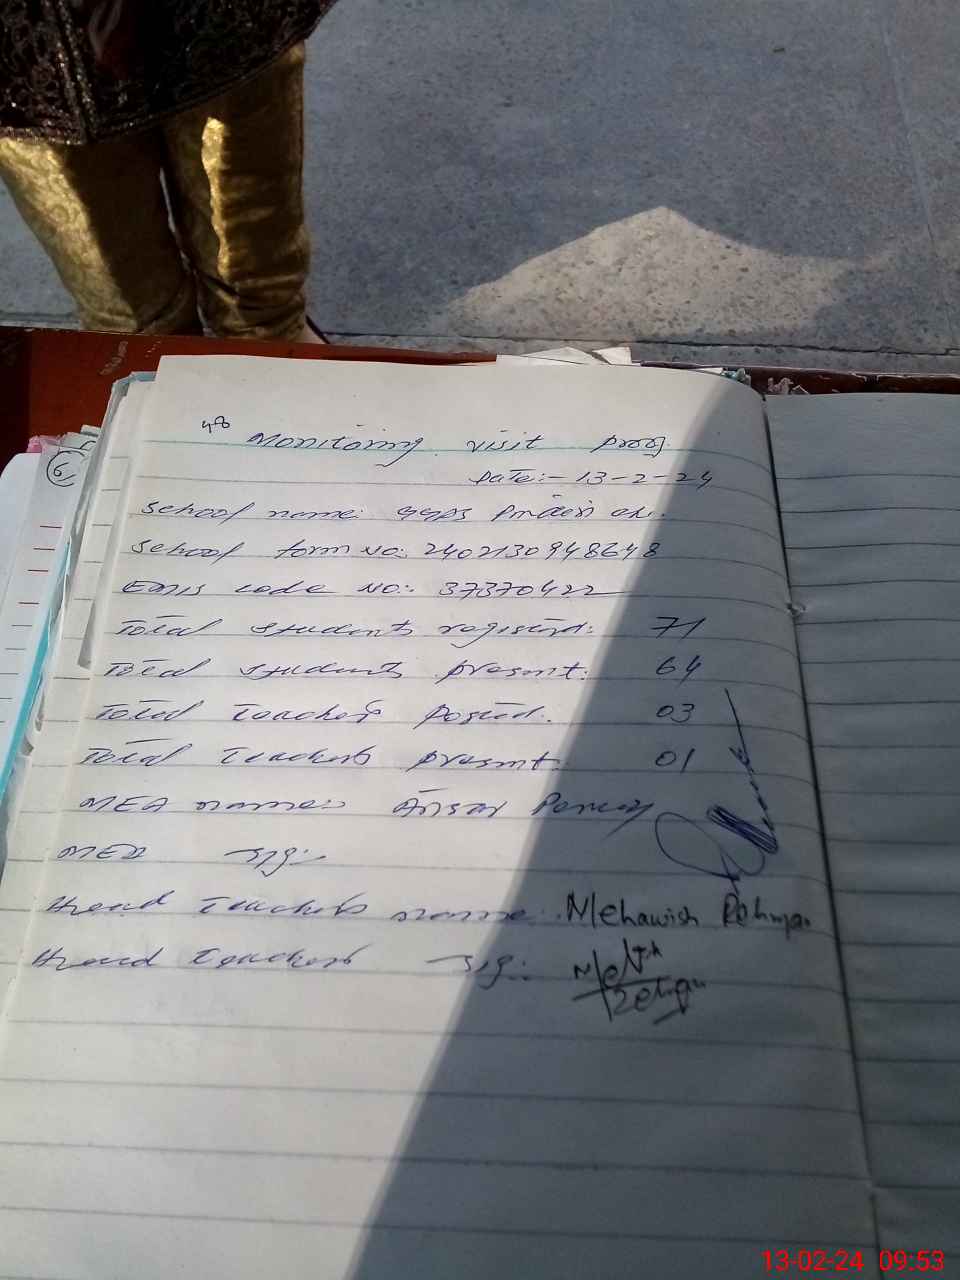 Monitoring visit proof
Date:- 13-2-24
School name: GGPS
School form No: 2402130948648
EMIS code No:- 37370422
Total students registerd: 71
Total students present: 64
Total Teachers Posted:. 03
Total Teachers present: 01
MEA name:
MEA sig:-
Head Teachers name: Mehawish Rehman
Head Teachers sig:
6
13-02-24 09:53